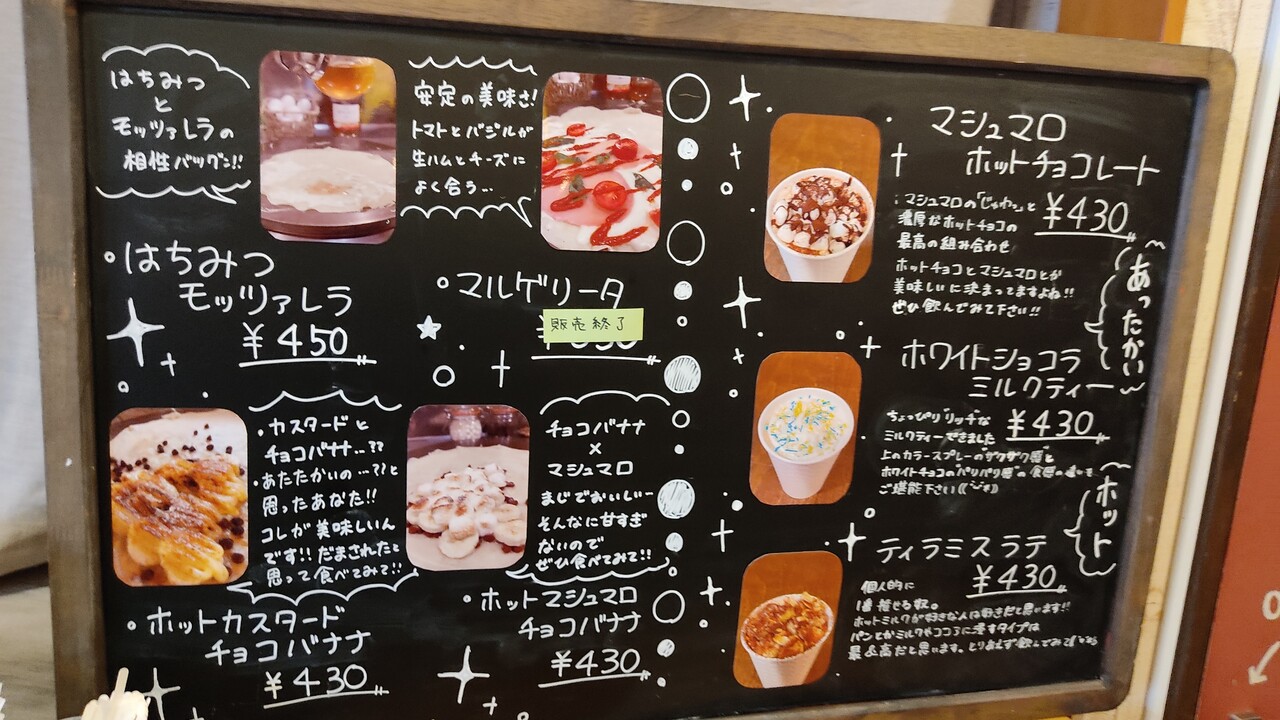 はちみつ
と
モッツァレラの
相性バッグン!!
・はちみつ
モッツァレラ
¥450
安定の美味さ!
トマトとバジルが
生ハムとチーズに
よく合う…
・マルゲリータ
販売終了
・カスタードと
チョコバナナ…??
・あたたかいの…??と
思ったあなた!!
コレが美味しいん
です!!だまされたと
思って食べてみて!!
・ホットカスタード
チョコバナナ
¥430
チョコバナナ
×
マシュマロ
まじでおいしい〜
そんなに甘すぎ
ないので
ぜひ食べてみて!!
・ホットマシュマロ
チョコバナナ
¥430
マシュマロ
ホットチョコレート
¥430
マシュマロの「じゅわっ」と
濃厚なホットチョコの
最高の組み合わせ
ホットチョコとマシュマロとか
美味しいに決まってますよね!!
ぜひ飲んでみて下さい!!
あったかい
ホワイトショコラ
ミルクティー
¥430
ちょっぴり"リッチ"な
ミルクティーできました
上のカラースプレーの"ザクザク感"と
ホワイトチョコの"パリパリ感"の食感の違いを
ご堪能下さい
ホット
ティラミスラテ
¥430
個人的に
1番推せる奴。
ホットミルクが好きな人は好きだと思います!!
パンとかミルクやココアに浸すタイプは
最&高だと思います。とりあえず飲んでみて